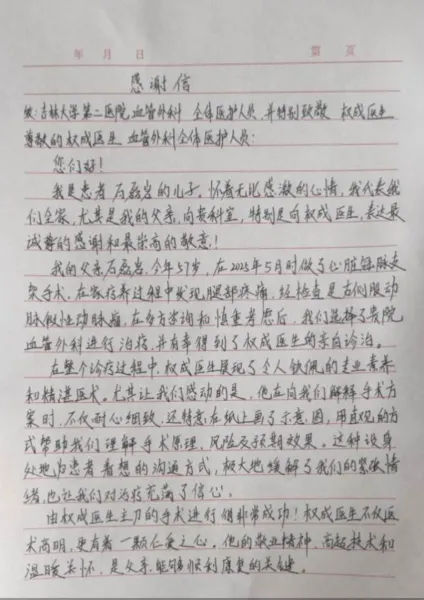 年 月 日 第 页
感谢信
致:吉林大学第二医院血管外科 全体医护人员,并特别致敬 权成医生
尊敬的权成医生 血管外科全体医护人员:
您们好!
我是患者石磊岩的儿子。怀着无比感激的心情,我代表我
们全家,尤其是我的父亲,向贵科室,特别是向权成医生,表达最
诚挚的感谢和最崇高的敬意!
我的父亲石磊岩,今年57岁,在2025年5月时做了心脏冠脉支
架手术,在家疗养过程中发现,腿部疼痛,经检查是右侧股动
脉假性动脉瘤,在多方咨询和慎重考虑后,我们选择了贵院
血管外科进行治疗,并有幸得到了权成医生的亲自诊治。
在整个诊疗过程中,权成医生展现了令人钦佩的专业素养
和精湛医术。尤其让我们感动的是,他在向我们解释手术方
案时,不仅耐心细致,还特意在纸上画了示意图,用直观的方
式帮助我们理解手术原理、风险及预期效果。这种设身
处地为患者着想的沟通方式,极大地缓解了我们的紧张情
绪,也让我们对治疗充满了信心。
由权成医生主刀的手术进行的非常成功!权成医生不仅医
术高明,更有着一颗仁爱之心。他的敬业精神、高超技术和
温暖关怀,是父亲能够顺利康复的关键。